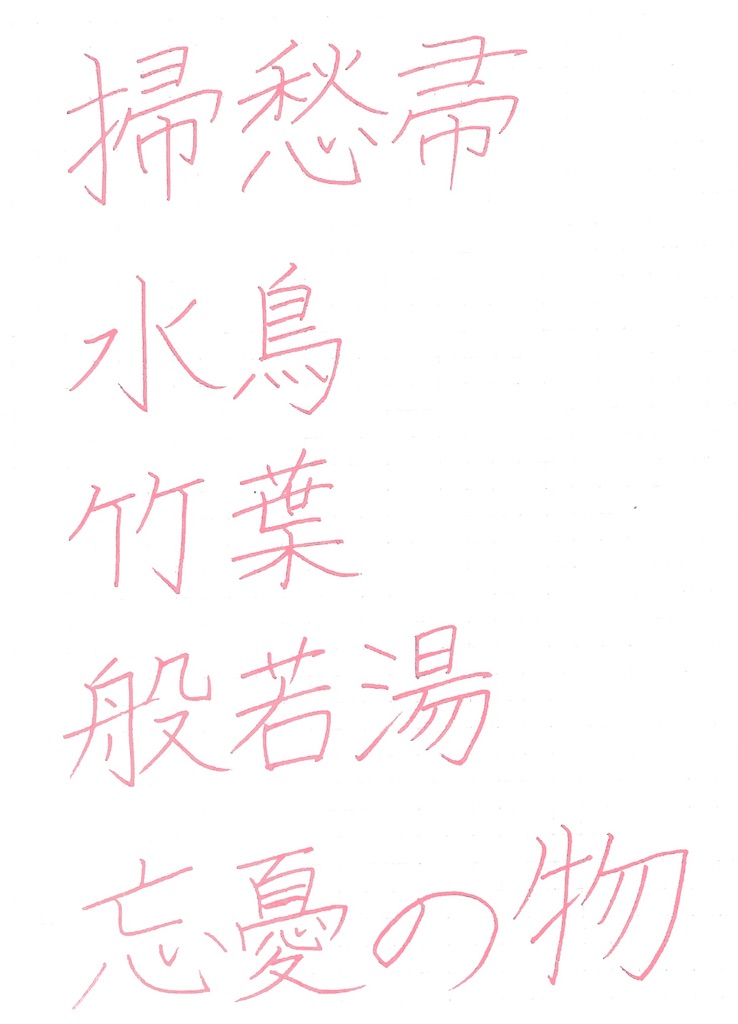 掃愁帚
水鳥
竹葉
般若湯
忘憂の物